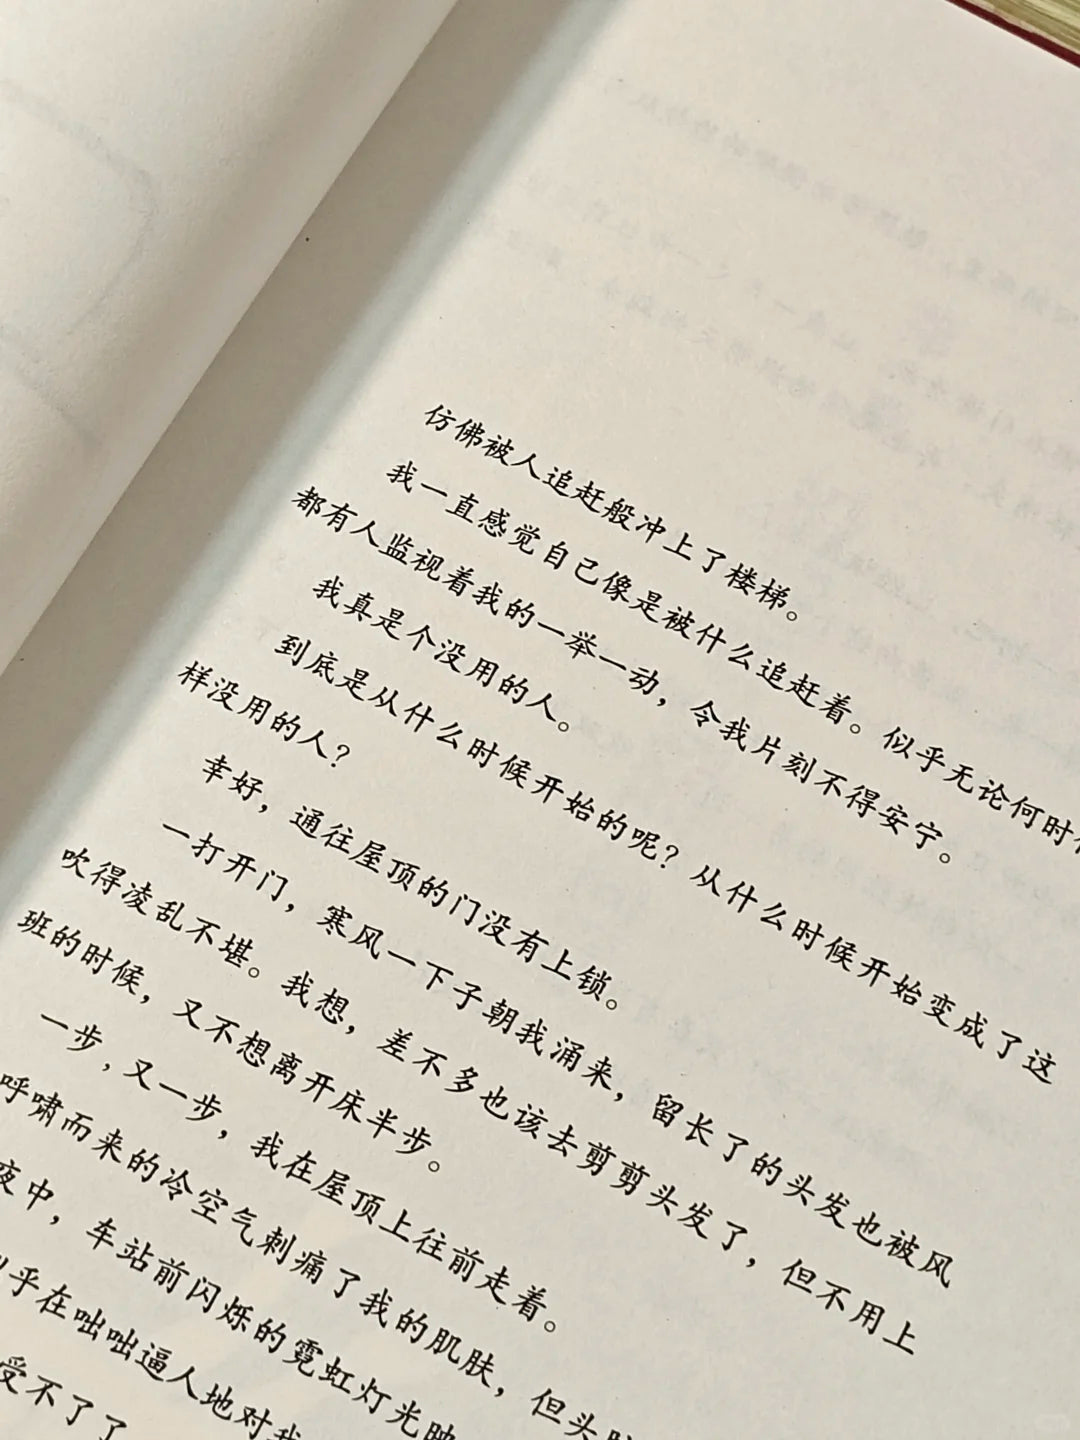 仿佛被人追赶般冲上了楼梯。
我一直感觉自己像是被什么追赶着。似乎无论何时
都有人监视着我的一举一动，令我片刻不得安宁。
我真是个没用的人。
到底是从什么时候开始的呢？从什么时候开始变成了这
样没用的人？
幸好，通往屋顶的门没有上锁。
一打开门，寒风一下子朝我涌来，留长了的头发也被风
吹得凌乱不堪。我想，差不多也该去剪剪头发了，但不用上
班的时候，又不想离开床半步。
一步，又一步，我在屋顶上往前走着。
呼啸而来的冷空气刺痛了我的肌肤，但头
夜中，车站前闪烁的霓虹灯光映
乎在咄咄逼人地对我
受不了了